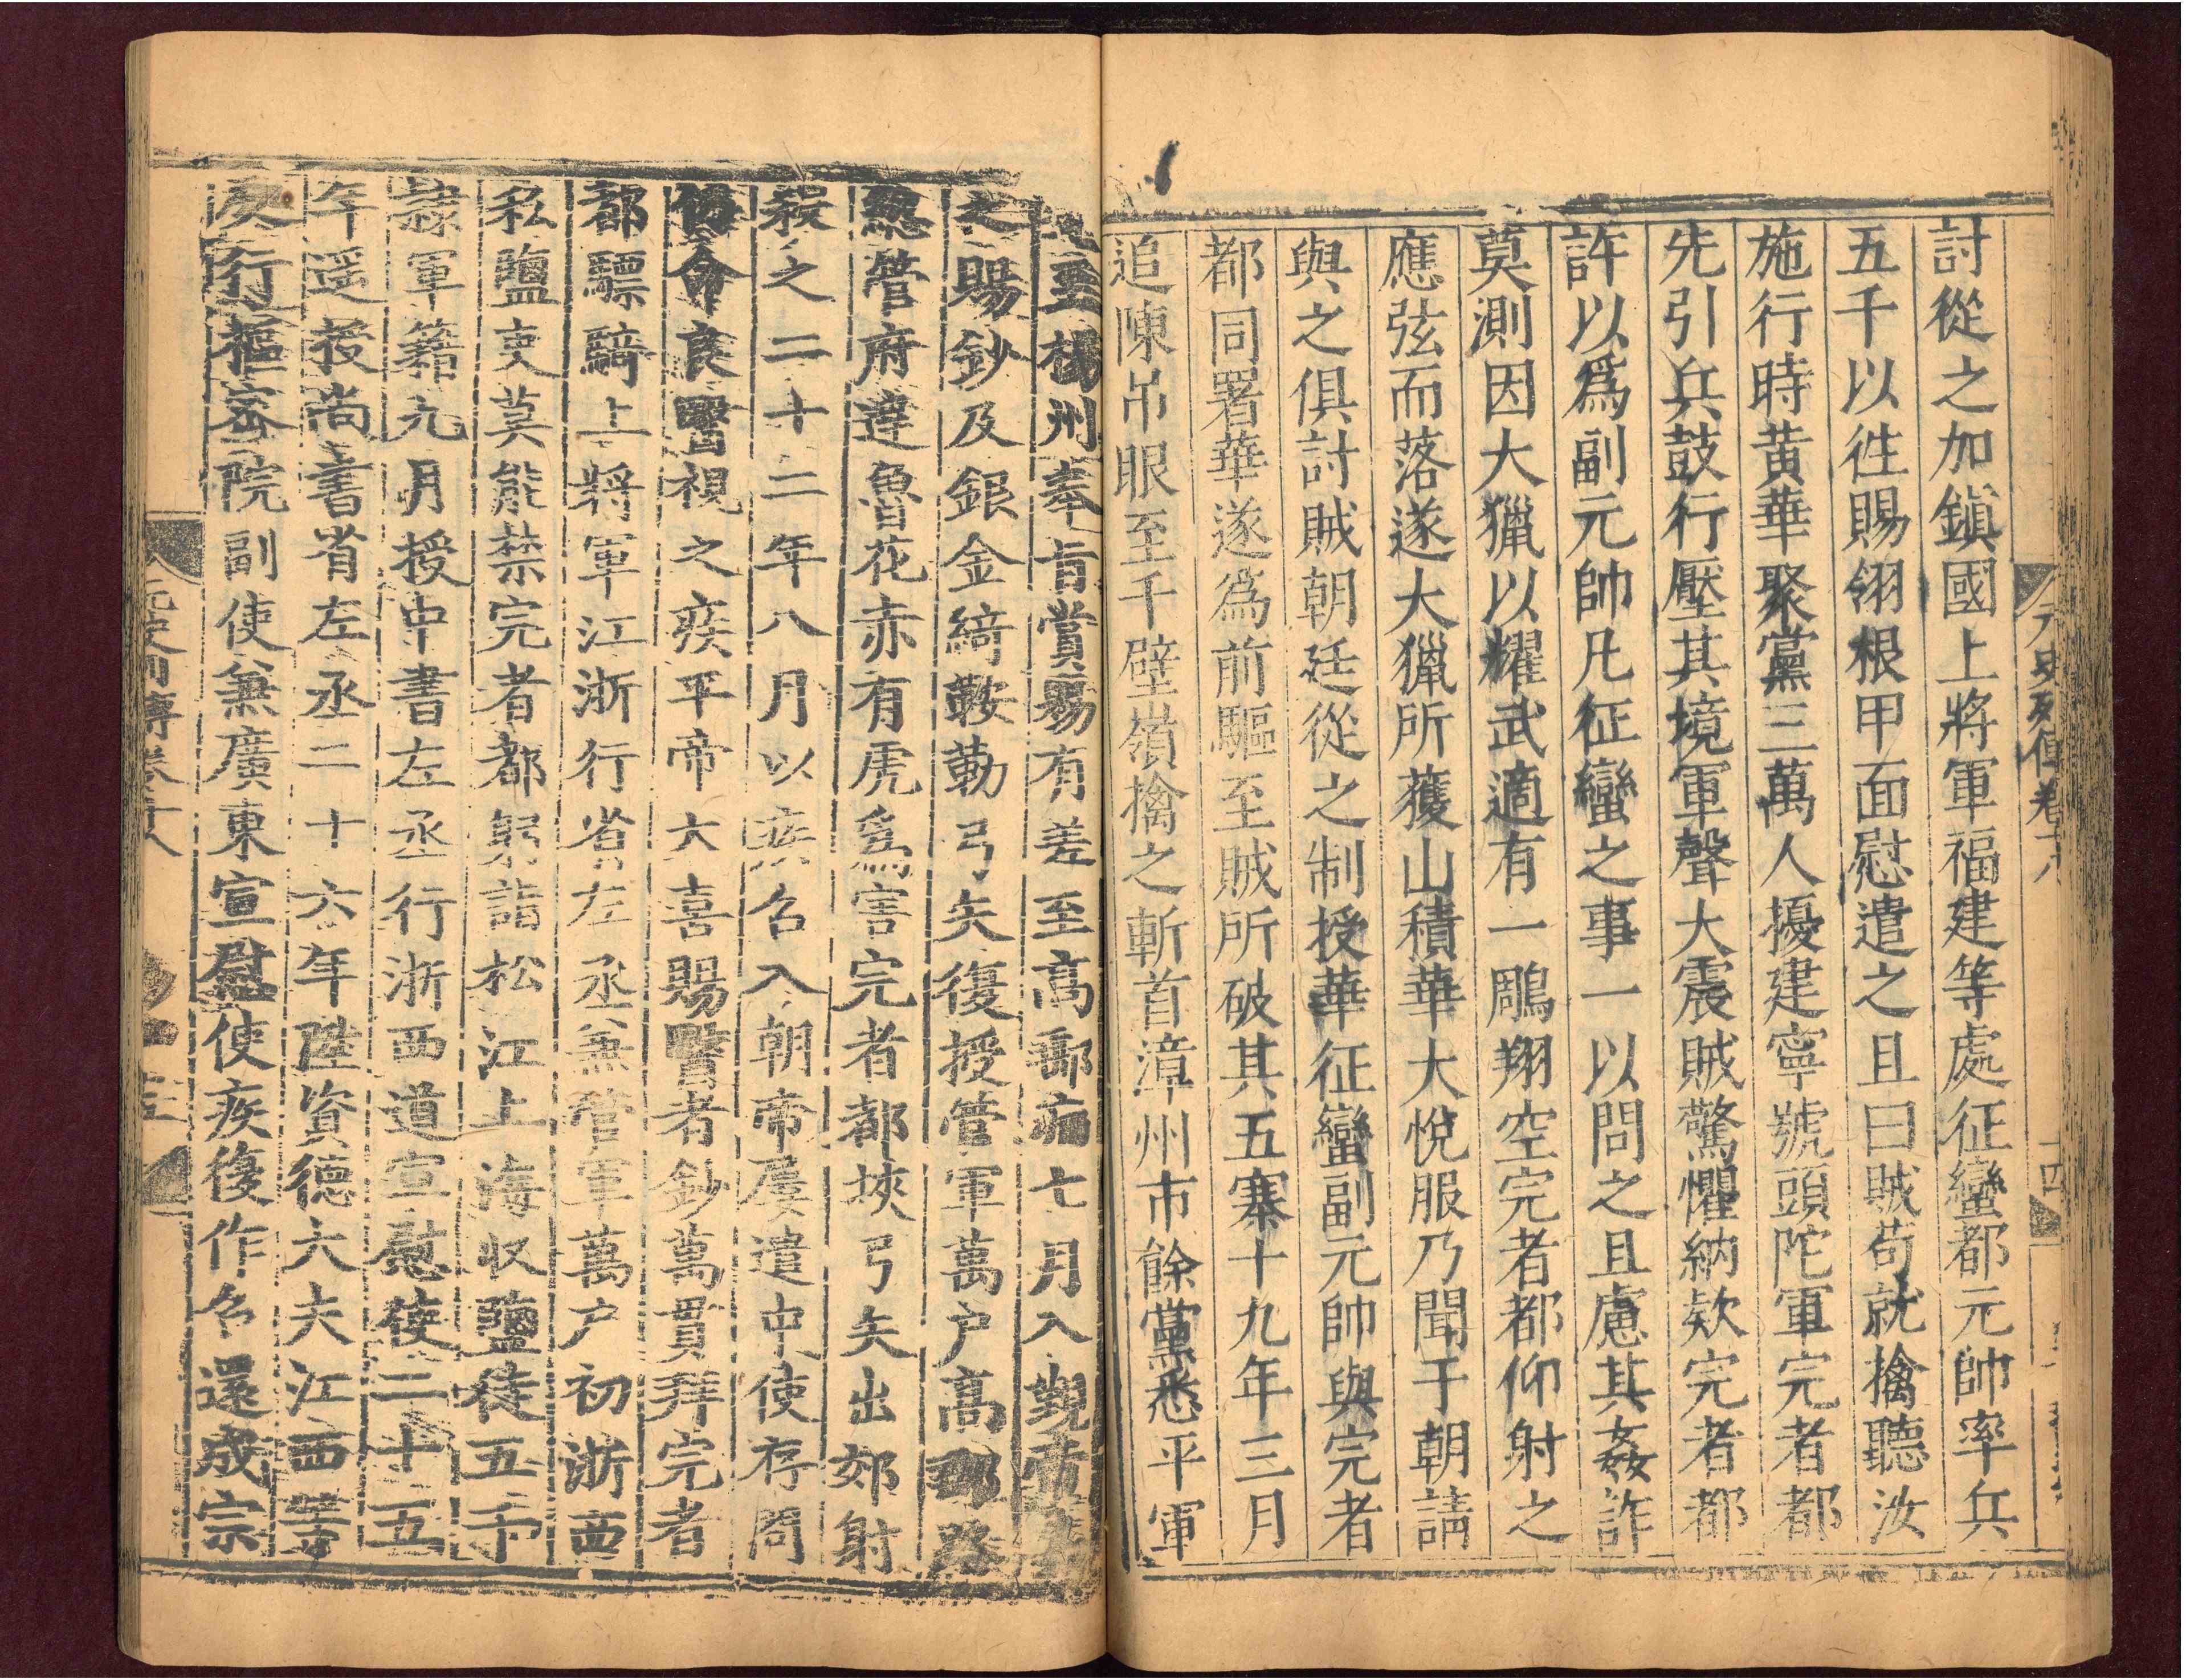 元史列傳卷十八
十四
討從之加鎮國上將軍福建等處征蠻都元帥率兵
五千以徃賜翎根甲面慰遣之且曰賊苟就擒聽汝
施行時黃華聚黨三萬人擾建寧號頭陀軍完者都
先引兵鼓行壓其境軍聲大震賊驚懼納欵完者都
許以爲副元帥凡征蠻之事一以問之且慮其姦詐
莫測因大獵以耀武適有一鵰翔空完者都仰射之
應弦而落遂大獵所獲山積華大悅服乃聞于朝請
與之俱討賊朝廷從之制授華征蠻副元帥與完者
都同署華遂爲前驅至賊所破其五寨十九年三月
追陳吊眼至千壁嶺擒之斬首漳州市餘黨悉平軍
至揚州奉旨賞賜有差至高郵病七月入覲帝
賜鈔及銀金綺鞍勒弓矢復授管軍萬户高郵路
總管府達魯花赤有虎爲害完者都挾弓矢出郊射
殺之二十二年八月以疾召入朝帝屢遣中使存問
仍命良醫視之疾平帝大喜賜醫者鈔萬貫拜完者
都驃騎上將軍江浙行省左丞兼管軍萬户初浙西
私鹽吏莫能禁完者都躬詣松江上海收鹽徒五千
隷軍籍九月授中書左丞行浙西道宣慰使二十五
年遥授尚書省左丞二十六年陞資德大夫江西等
處行樞密院副使兼廣東宣慰使疾復作召還成宗
元史列傳卷十八
十五